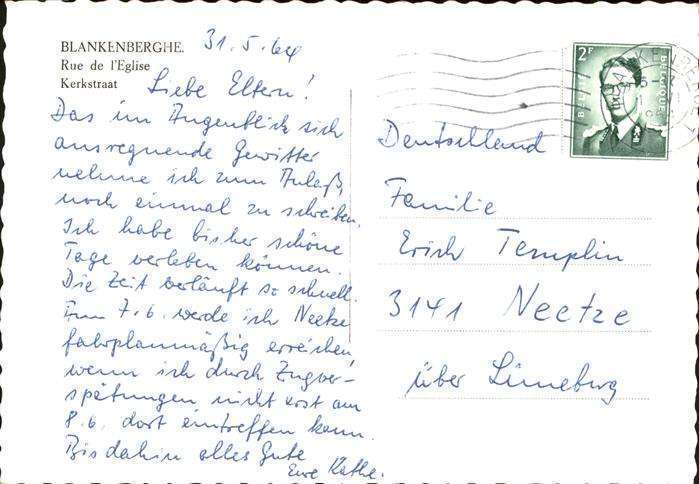 BLANKENBERGHE.
Rue de l'Eglise
Kerkstraat
31.5.64
Liebe Eltern!
Das im Augenblick sich
ausregnende Gewitter
nehme ich zum Anlaß,
noch einmal zu schreiben.
Ich habe bisher schöne
Tage verleben können.
Die Zeit verläuft so schnell.
Zum 7.6. werde ich Neetze
fahrplanmäßig erreichen,
wenn ich durch Zugver-
spätungen nicht erst am
8.6. dort eintreffen kann.
Bis dahin alles Gute
Eure Käthe.
2F
BELGIQUE
Deutschland
Familie
Erich Templin
3141 Neetze
über Lüneburg